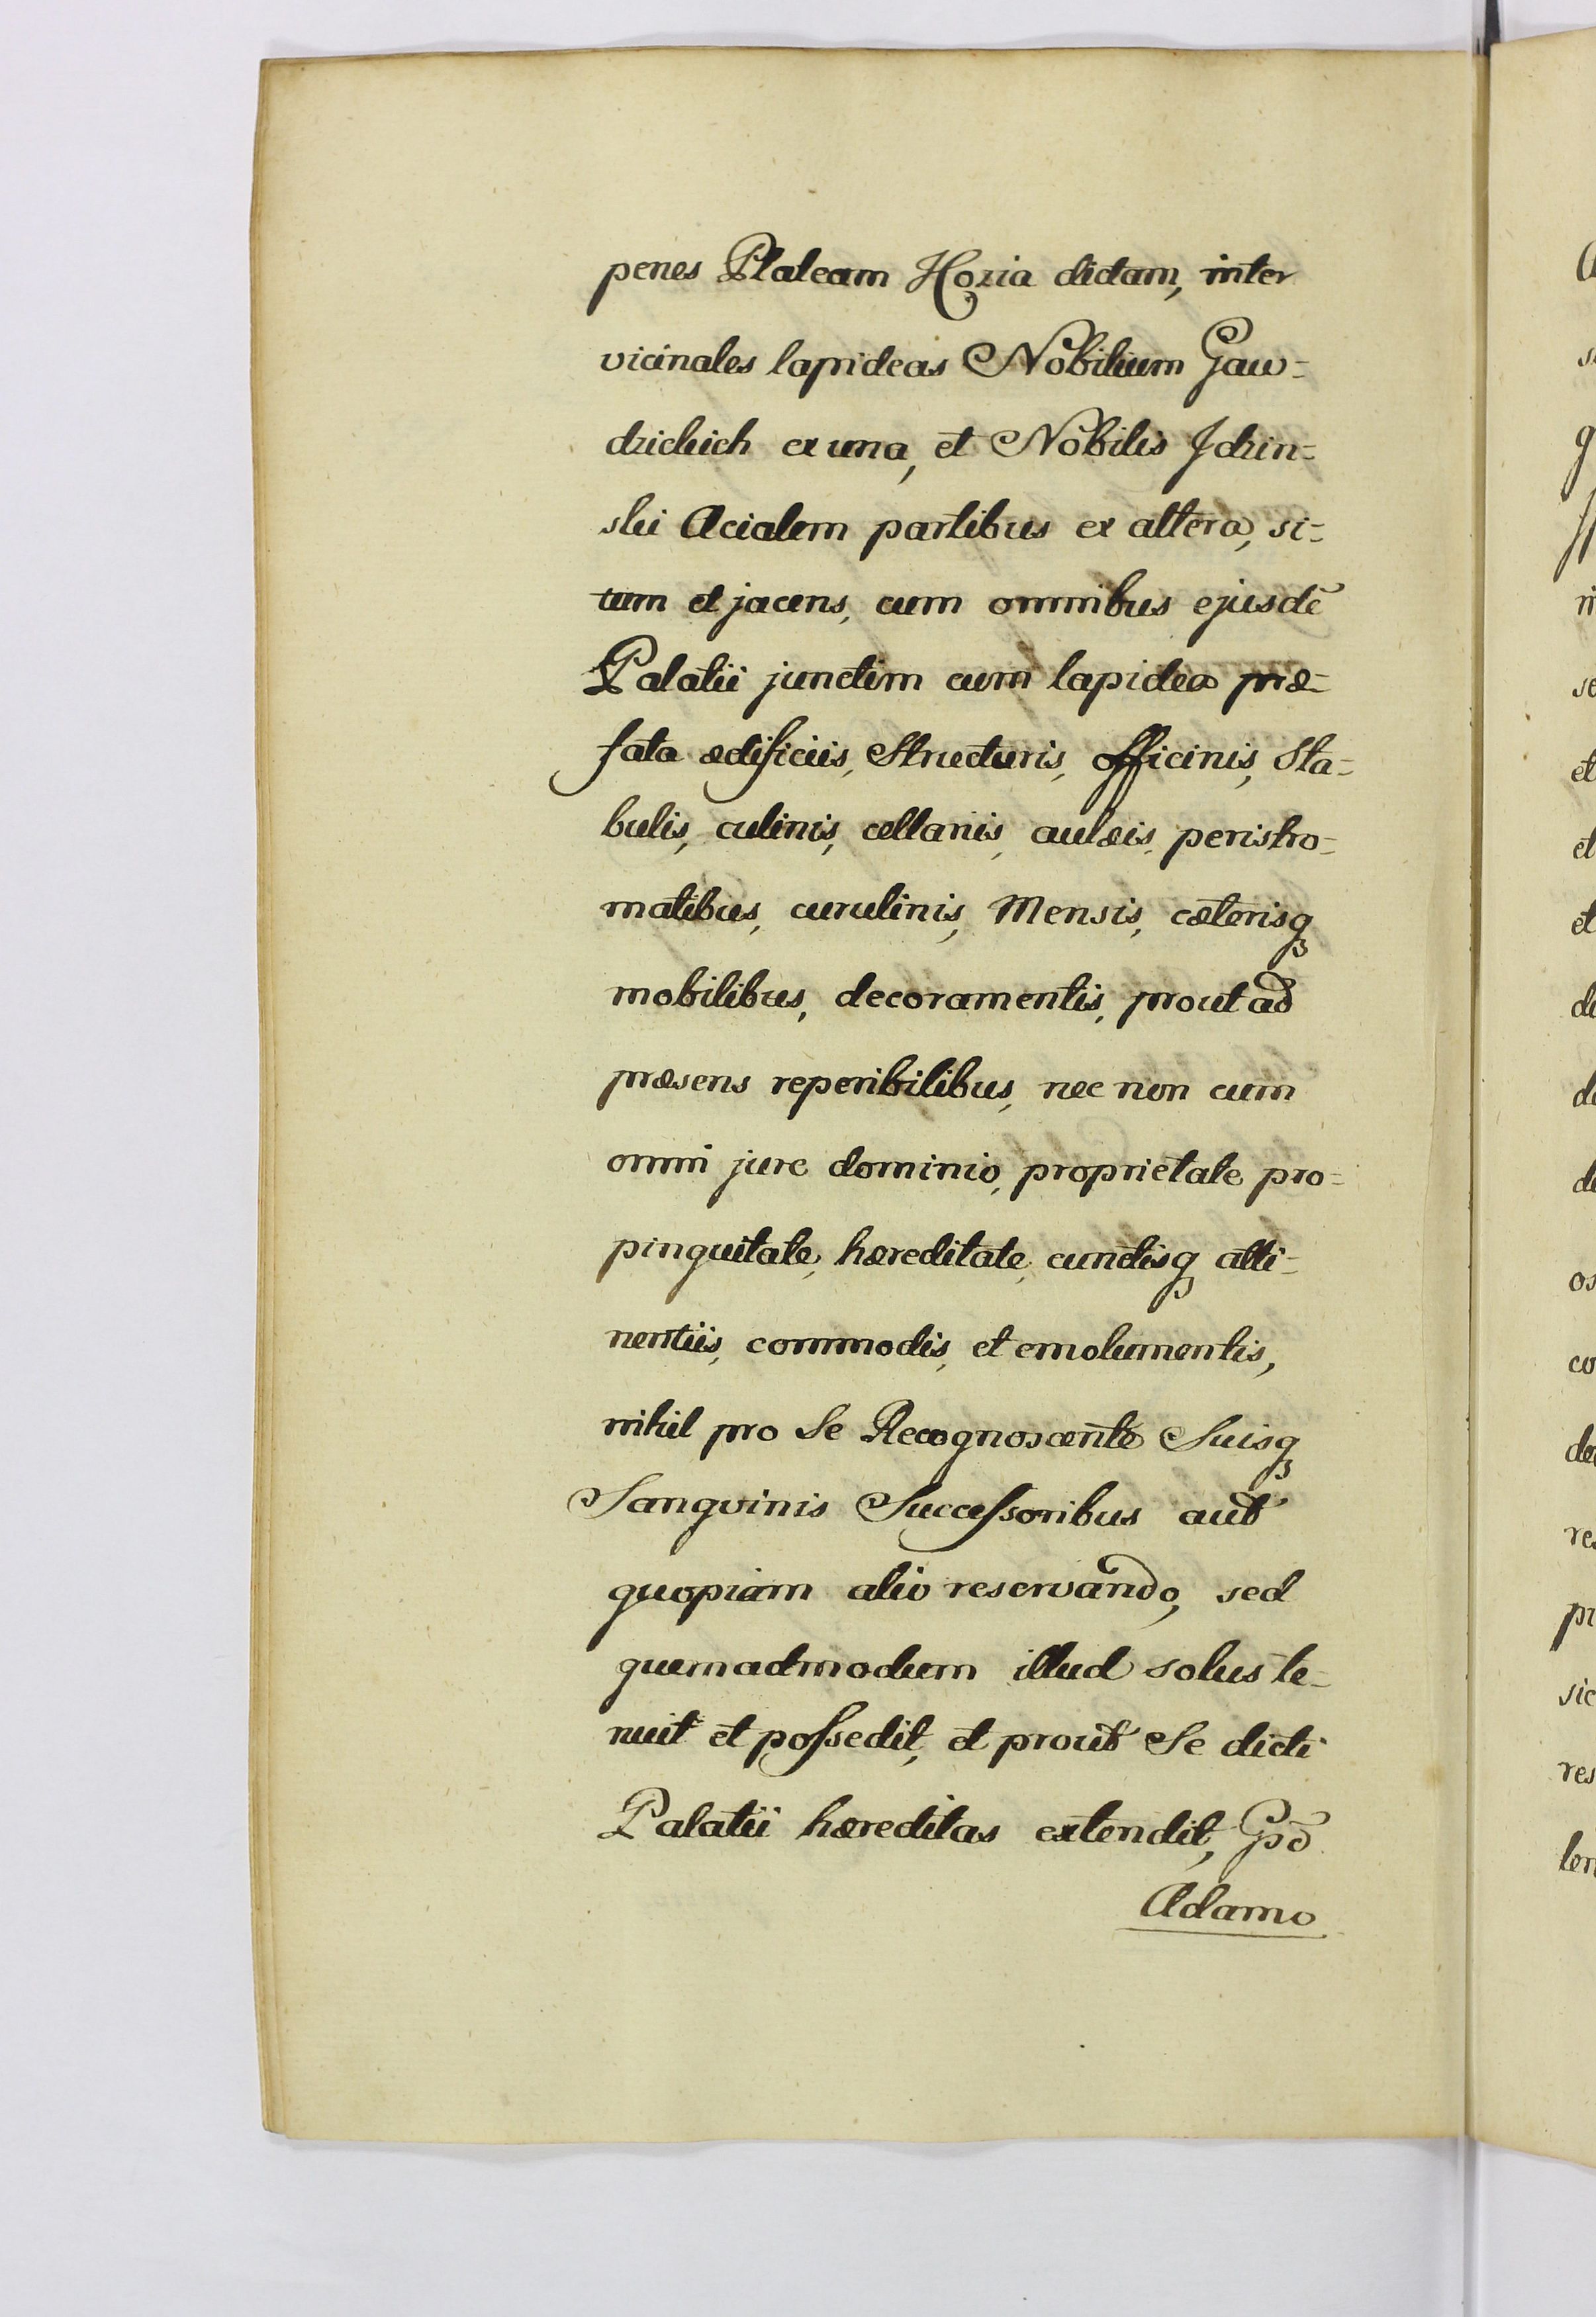 penes Plateam Hozia dictam, inter
vicinales lapideas Nobilium Gaw-
dzickich ex una, et Nobilis Jdzin-
ski Acialem partibus ex altera, si-
tum et jacens, cum omnibus ejusdē
Palatii junctim cum lapidea præ-
fata ædificiis, Structuris, officinis, Sta-
bulis, culinis, cellariis, aulæis, peristro-
matibus, curulinis, Mensis, cæterisq
mobilibus, decoramentis, prout ad
præsens reperibilibus, nec non cum
omni jure dominio, proprietate, pro-
pinquitate, hæreditate, cunctisq atti-
nentiis, commodis, et emolumentis,
nihil pro Se Recognoscente Suisq
Sangvinis Successoribus aut
quopiam alio reservando, sed
quemadmodum illud solus te-
nuit et possedit, et prout Se dicti
Palatii hæreditas extendit, Gsō
Adamo